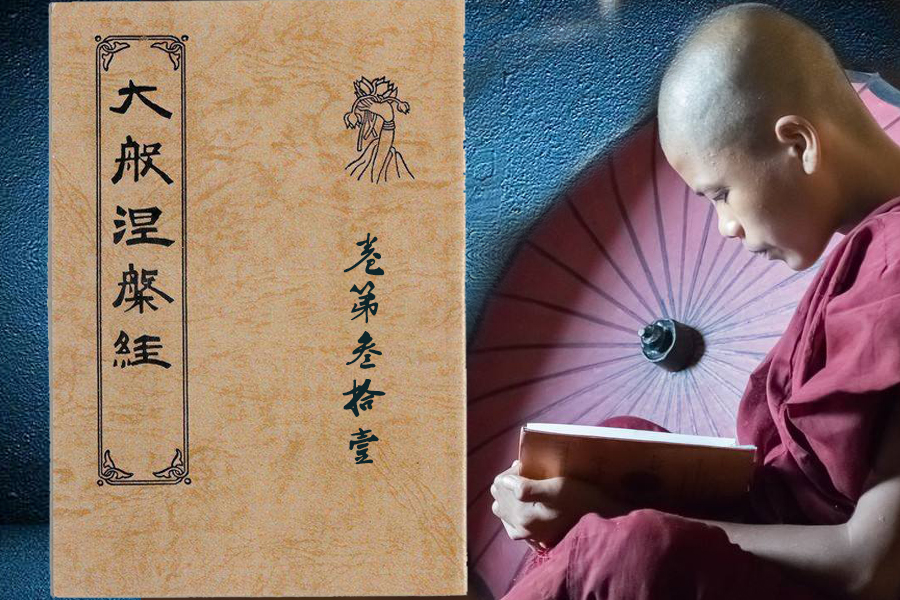 大般涅槃経
卷第叁拾壹